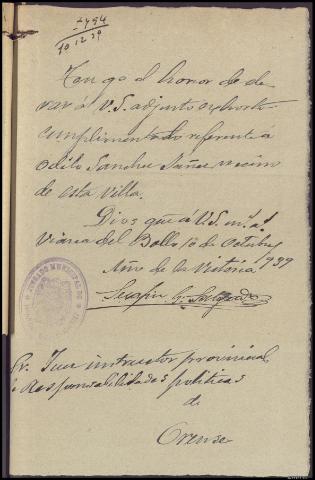 10 12 39
Tengo el honor de de
var á V.S. adjunto exhorto
cumplimentado referente a
Odilo Sanchez Yañez vecino
de esta villa.
Dios gue á V.S. m.s a.s
Viana del Bollo 10 de Octubre 1939
Año de la Victoria
Serafin
JUZGADO MUNICIPAL
Sr. Juez instructor provincial
Responsabilidades politicas
de
Orense